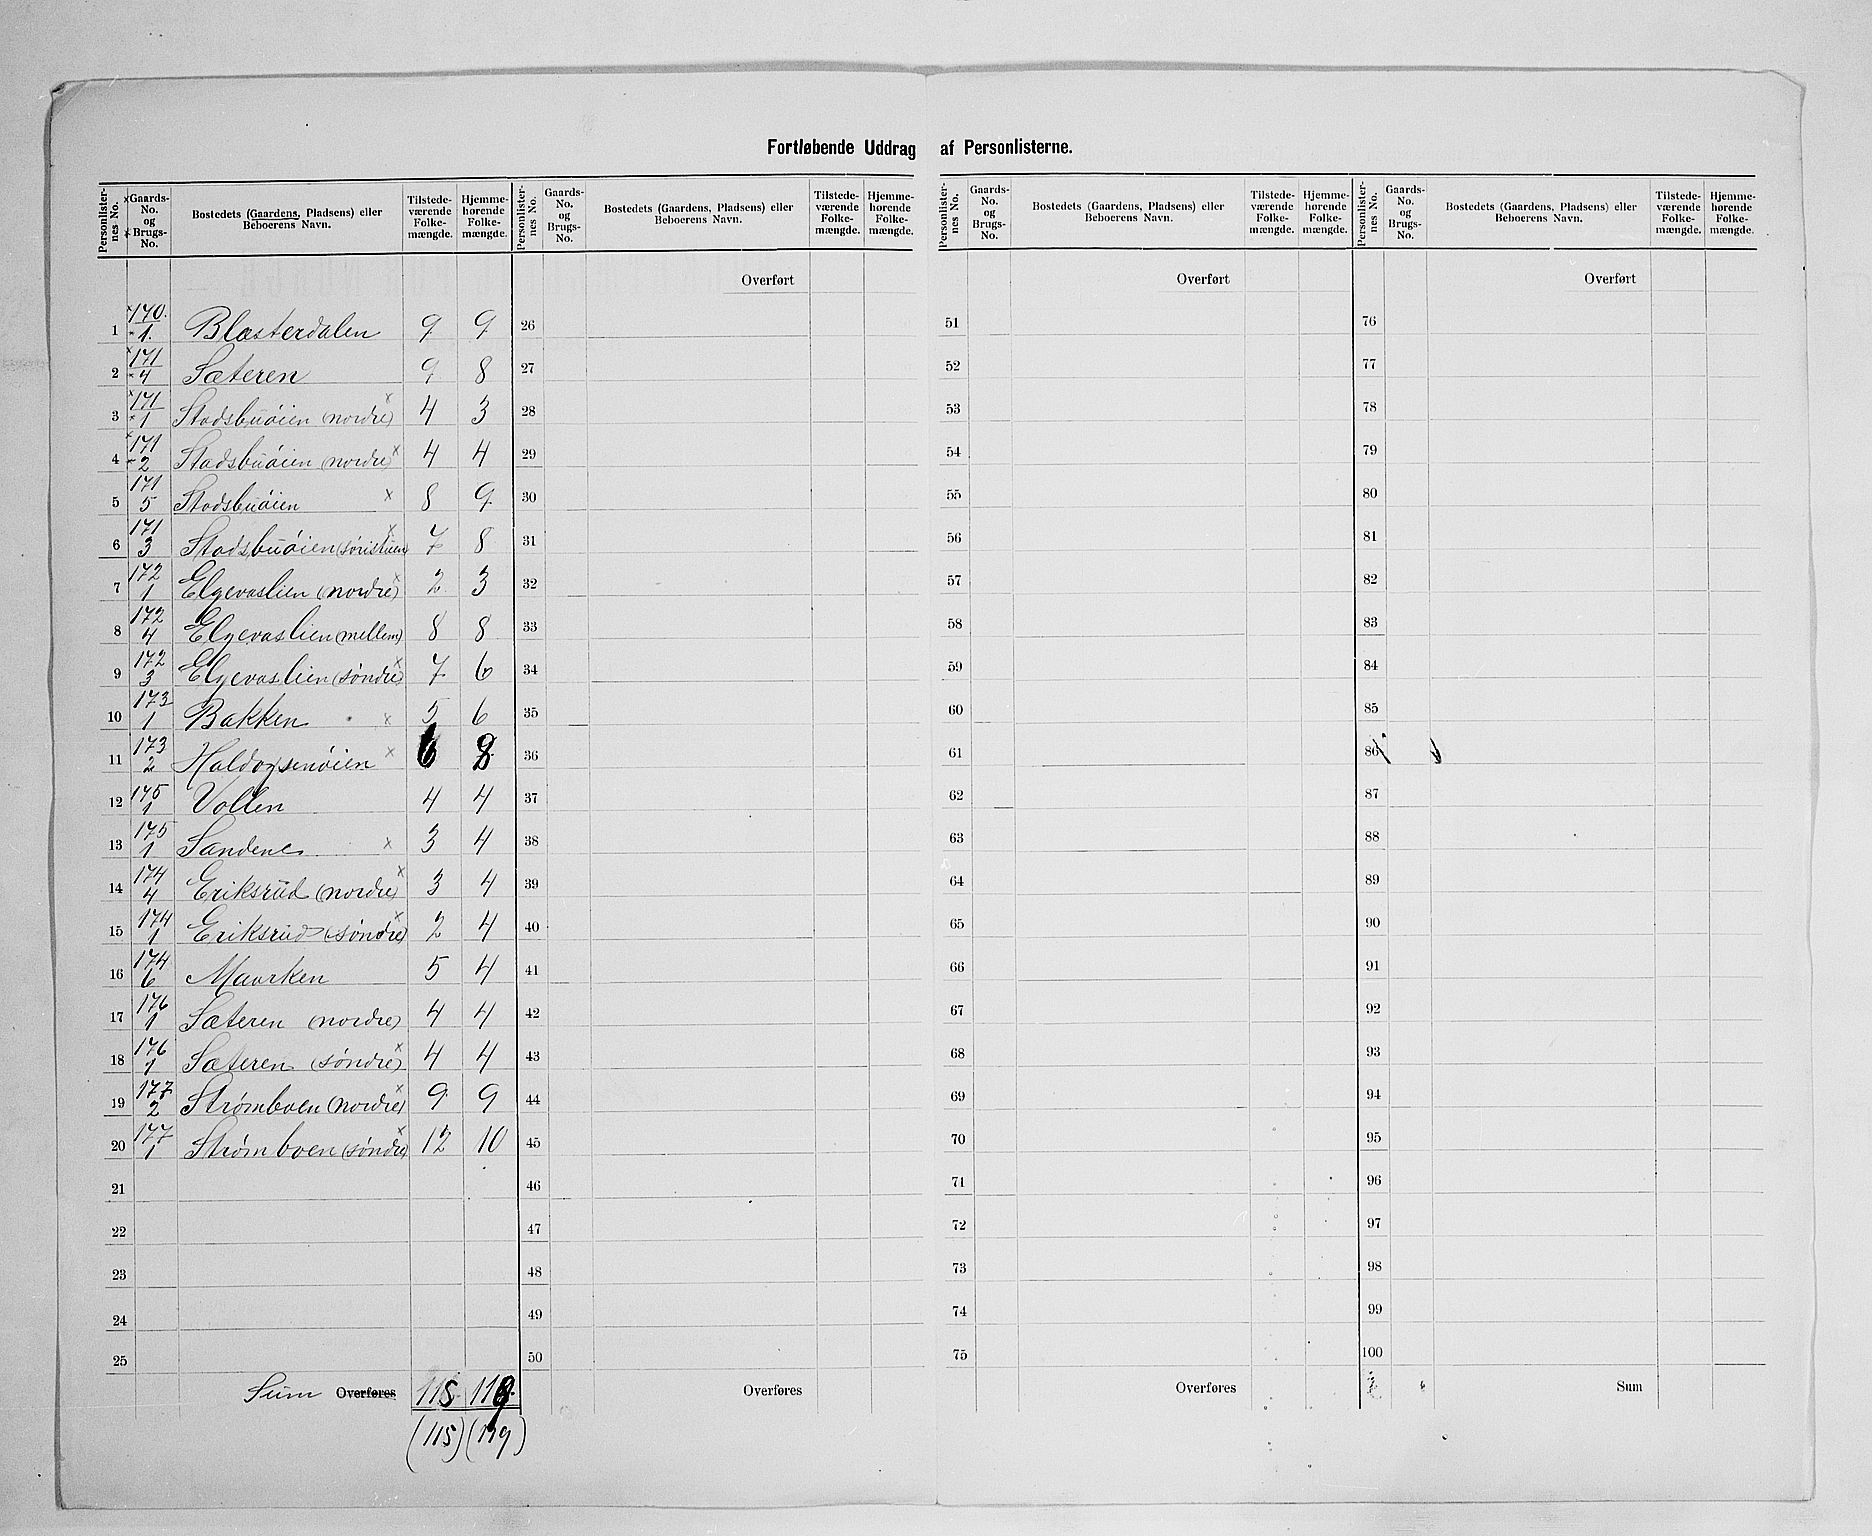 Fortløbende Uddrag af Personlisterne.
Personlisternes No. | Gaards-No. og Brugs-No. | Bostedets (Gaardens, Pladsens) eller Beboerens Navn. | Tilstedeværende Folkemængde. | Hjemmehørende Folkemængde. | Personlisternes No. | Gaards-No. og Brugs-No. | Bostedets (Gaardens, Pladsens) eller Beboerens Navn. | Tilstedeværende Folkemængde. | Hjemmehørende Folkemængde. | Personlisternes No. | Gaards-No. og Brugs-No. | Bostedets (Gaardens, Pladsens) eller Beboerens Navn. | Tilstedeværende Folkemængde. | Hjemmehørende Folkemængde. | Personlisternes No. | Gaards-No. og Brugs-No. | Bostedets (Gaardens, Pladsens) eller Beboerens Navn. | Tilstedeværende Folkemængde. | Hjemmehørende Folkemængde.
Overført Overført Overført
1 170/1 Blæsterdalen 9 9 26 51 76
2 171/4 Sæteren 9 8 27 52 77
3 171/1 Stadsbuøien (nordre) x 4 3 28 53 78
4 171/2 Stadsbuøien (nordre) x 4 4 29 54 79
5 171/5 Stadsbuøien x 8 9 30 55 80
6 171/3 Stadsbuøien x 7 8 31 56 81
7 172/1 Elgevaslien (nordre) x 2 3 32 57 82
8 172/4 Elgevaslien (mellem) 8 8 33 58 83
9 172/3 Elgevaslien (søndre) x 7 6 34 59 84
10 173/1 Bakken x 5 6 35 60 85
11 173/2 Haldogsenøien x 6 8 36 61 86
12 175/1 Vollen 4 4 37 62 87
13 175/1 Sandene x 3 4 38 63 88
14 174/4 Eriksrud (nordre) x 3 4 39 64 89
15 174/1 Eriksrud (søndre) x 2 4 40 65 90
16 174/6 Maarken 5 4 41 66 91
17 176/1 Sæteren (nordre) 4 4 42 67 92
18 176/1 Sæteren (søndre) x 4 4 43 68 93
19 177/2 Strømboen (nordre) x 9 9 44 69 94
20 177/1 Strømboen (søndre) x 12 10 45 70 95
21 46 71 96
22 47 72 97
23 48 73 98
24 49 74 99
25 50 75 100
Sum Overføres 115 119 Overføres Overføres Sum
(115) (119)